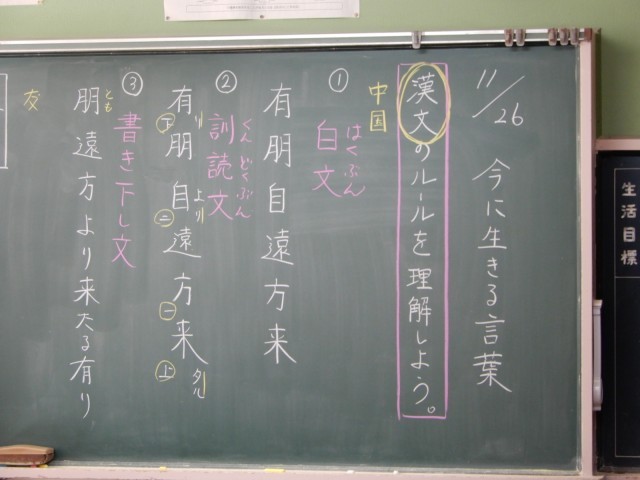 11/26 今に生きる言葉
漢文のルールを理解しよう。
中国
①
はくぶん
白文
有朋自遠方来
②
くんどくぶん
訓読文
有リ下朋自リ二遠方一来タル上
③
書き下し文
とも
朋遠方より来たる有り
友
生活目標